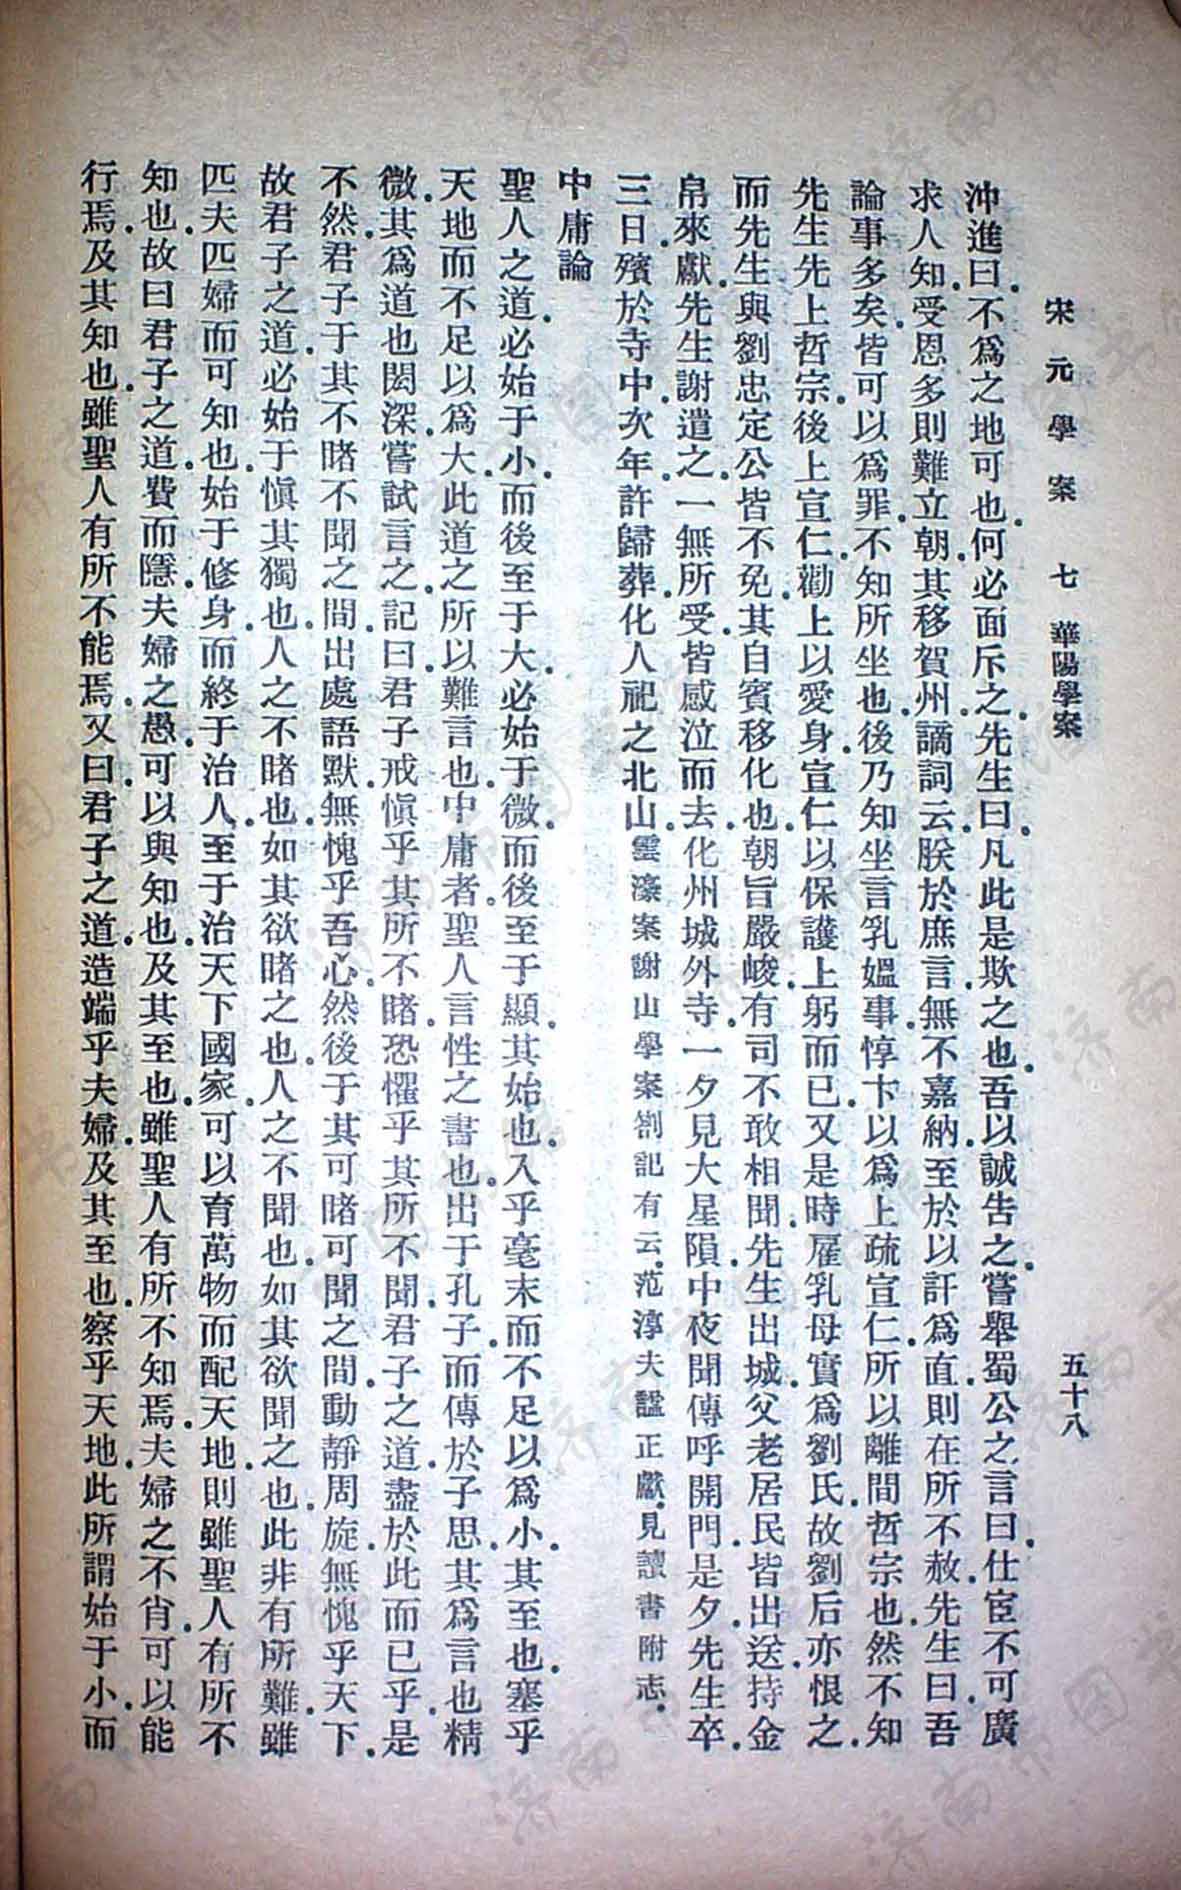 宋元學案 七 華陽學案 五十八
沖進曰.不爲之地可也.何必面斥之.先生曰.凡此是欺之也.吾以誠告之.嘗舉蜀公之言曰.仕宦不可廣
求人知.受恩多則難立朝.其移賀州.謫詞云.朕於庶言.無不嘉納.至於以訐爲直.則在所不赦.先生曰.吾
論事多矣.皆可以爲罪.不知所坐也.後乃知坐言乳媼事.惇卞以爲上疏宣仁.所以離間哲宗也.然不知
先生先上哲宗.後上宣仁.勸上以愛身.宣仁以保護上躬而已.又是時雇乳母.實爲劉氏.故劉后亦恨之.
而先生與劉忠定公皆不免.其自賓移化也.朝旨嚴峻.有司不敢相聞.先生出城.父老居民皆出送.持金
帛來獻.先生謝遣之.一無所受.皆感泣而去.化州城外寺.一夕見大星隕.中夜聞傳呼開門.是夕先生卒.
三日殯於寺中.次年許歸葬.化人祀之北山.雲濠案謝山學案劄記有云.范淳夫諡正獻.見讀書附志.
中庸論
聖人之道.必始于小.而後至于大.必始于微.而後至于顯.其始也.入乎毫末.而不足以爲小.其至也.塞乎
天地.而不足以爲大.此道之所以難言也.中庸者.聖人言性之書也.出于孔子.而傳於子思.其爲言也精
微.其爲道也閎深.嘗試言之.記曰.君子戒愼乎其所不睹.恐懼乎其所不聞.君子之道.盡於此而已乎.是
不然.君子于其不睹不聞之間.出處語默.無愧乎吾心.然後于其可睹可聞之間.動靜周旋.無愧乎天下.
故君子之道.必始于愼其獨也.人之不睹也.如其欲睹之也.人之不聞也.如其欲聞之也.此非有所難.雖
匹夫匹婦而可知也.始于修身.而終于治人.至于治天下國家.可以育萬物而配天地.則雖聖人有所不
知也.故曰.君子之道.費而隱.夫婦之愚.可以與知也.及其至也.雖聖人有所不知焉.夫婦之不肖.可以能
行焉.及其知也.雖聖人有所不能焉.又曰.君子之道.造端乎夫婦.及其至也.察乎天地.此所謂始于小.而